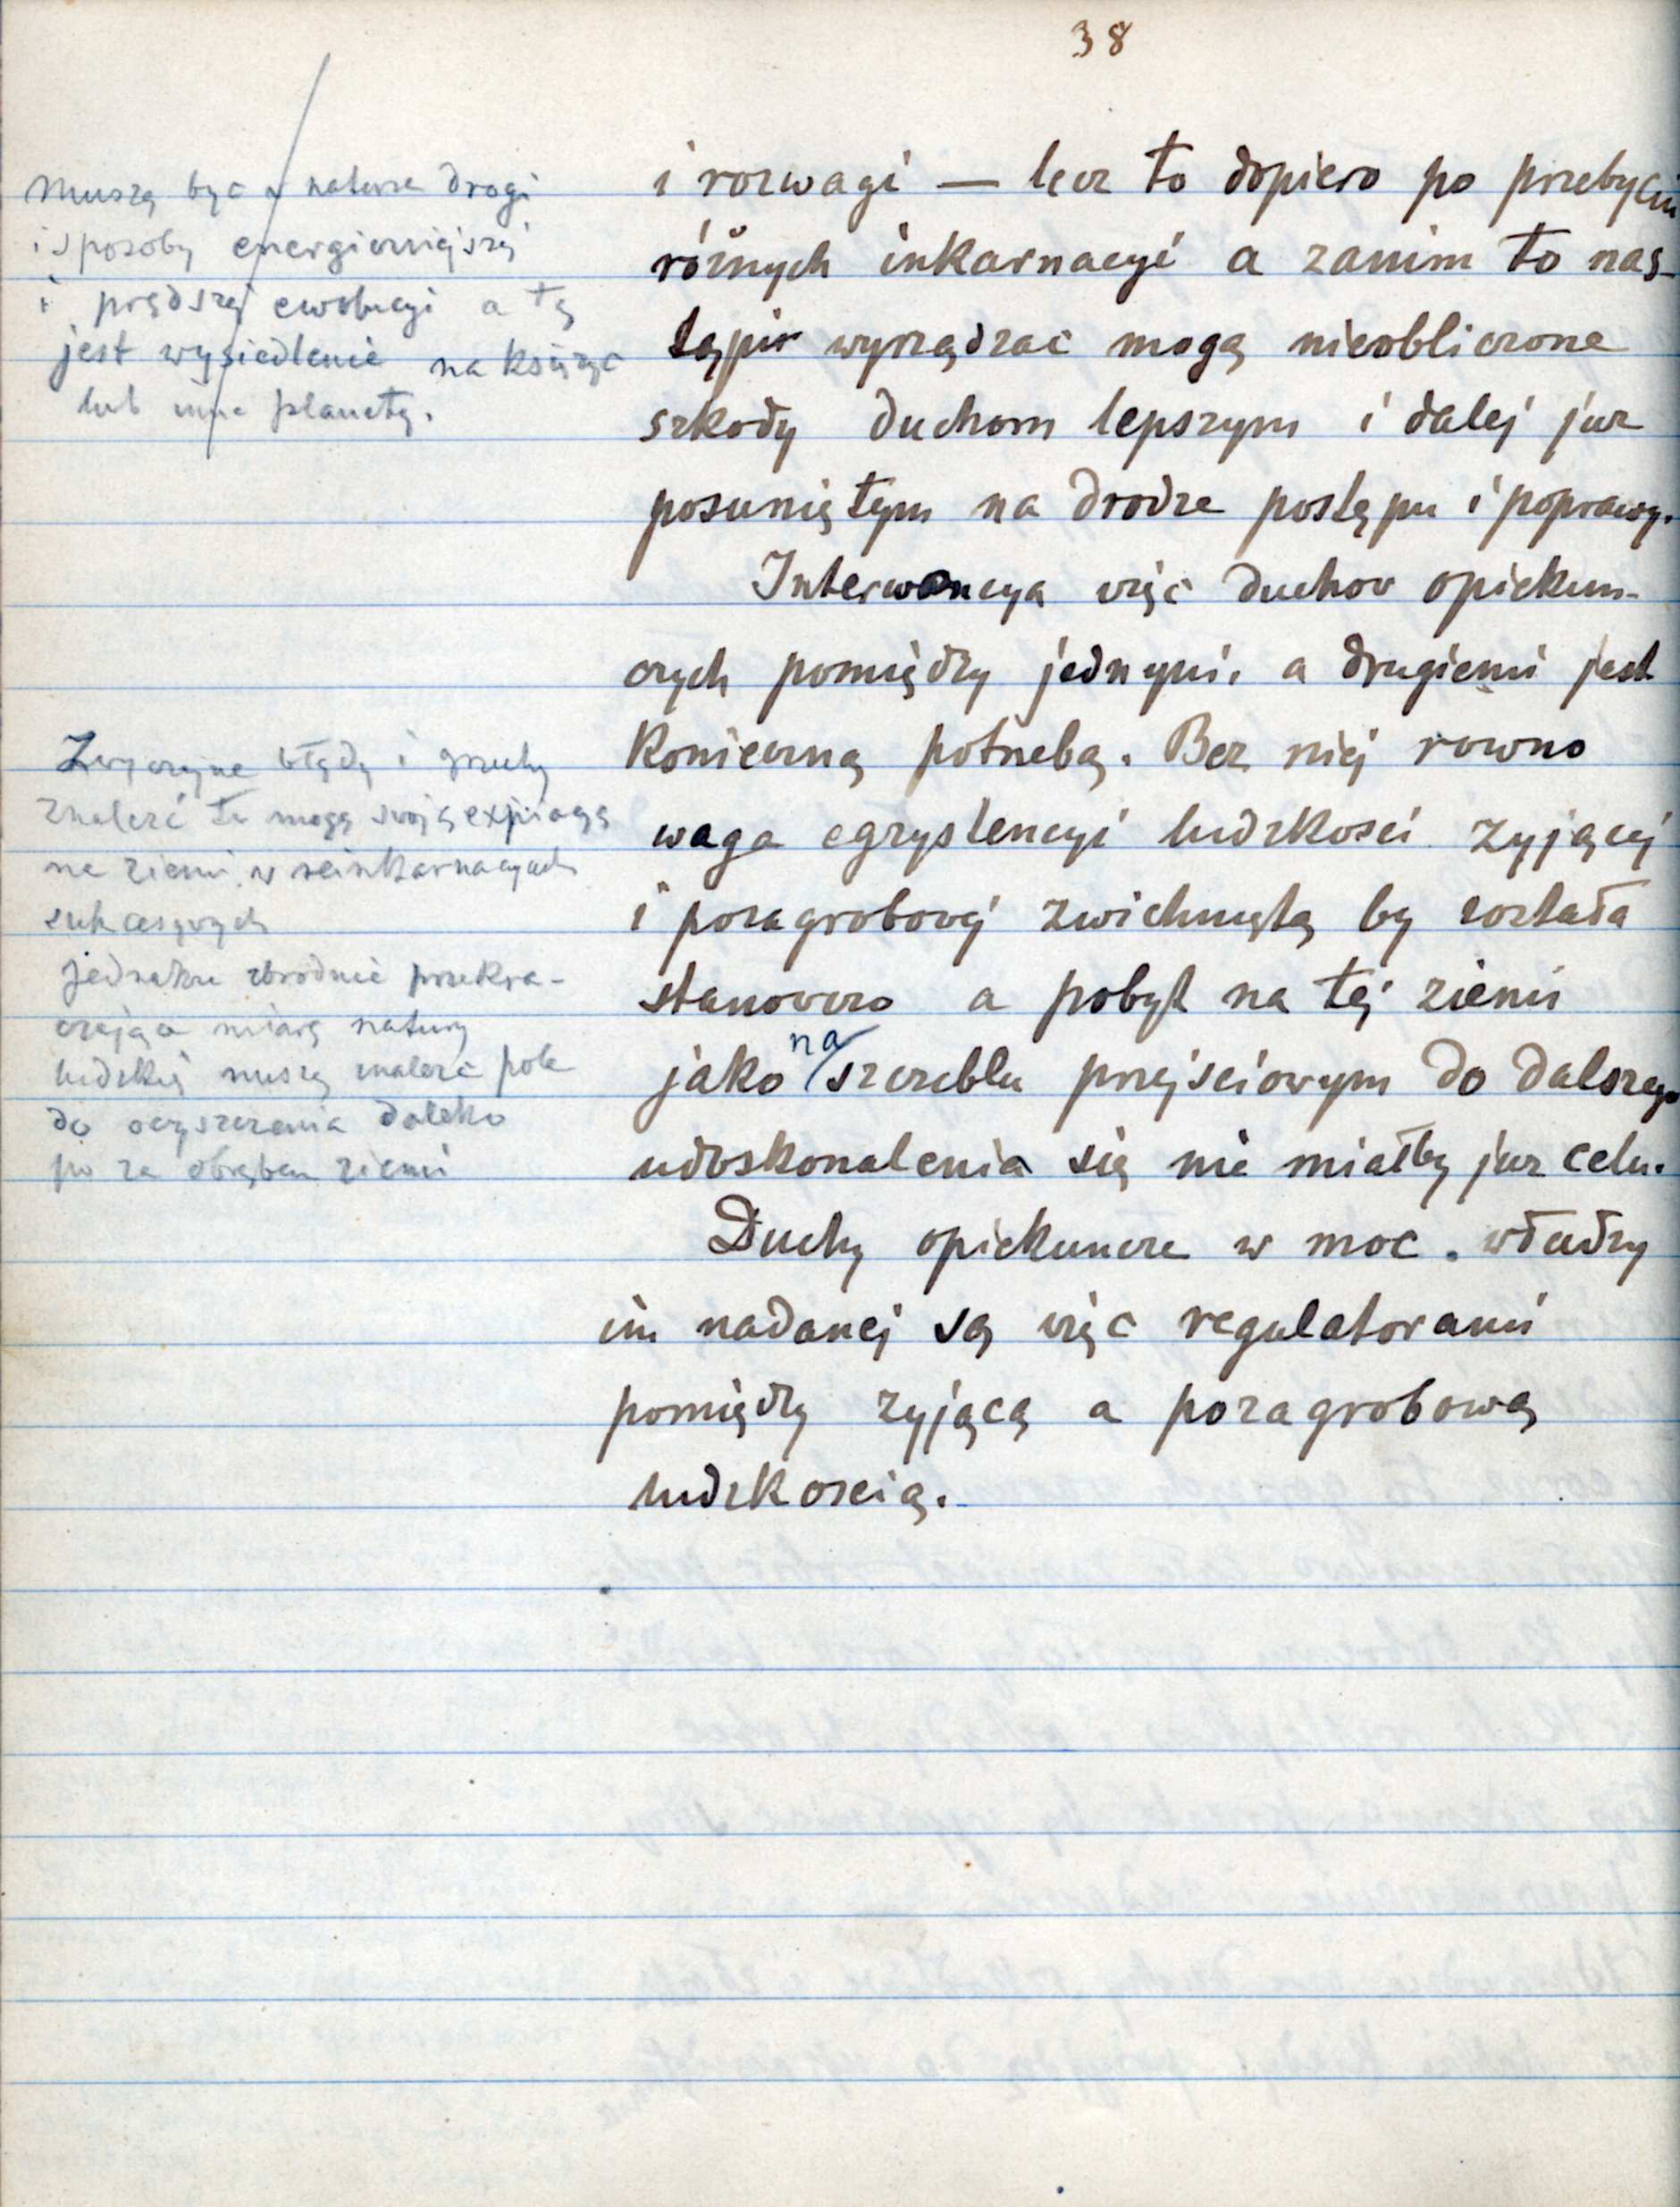 38
Muszą być w naturze drogi
i sposoby energiczniejszej
i prędszej ewolucyi a tą
jest wysiedlenie na księżyc
lub inne planety.
i rozwagi — lecz to dopiero po przebyciu
różnych inkarnacyi a zanim to nas-
tąpi wyrządzac mogą nieobliczone
szkody duchom lepszym i dalej juz
posuniętym na drodze postępu i poprawy.
Interwencya więc duchow opiekun-
czych pomiędzy jednymi, a drugiemi jest
Konieczną potrzebą. Bez niej rowno
waga egzystencyi ludzkosci zyjącej
i pozagrobovej zwichniętą by została
stanowczo a pobyt na tej ziemi
jako na szczeblu przejsciowym do dalszego
udoskonalenia się nie miałby juz celu.
Duchy opiekuncze w moc władzy
im nadanej są więc regulatorami
pomiędzy zyjącą a pozagrobową
ludzkoscią.
Zwyczajne błędy i grzechy
znalezć tu mogą swoją expiacyą
na ziemi w reinkarnacyach
sukcesywnych
jednakze zbrodnie przekra-
czające miarę natury
ludzkiej muszą znalezć pole
do oczyszczenia daleko
po za obrębem ziemi